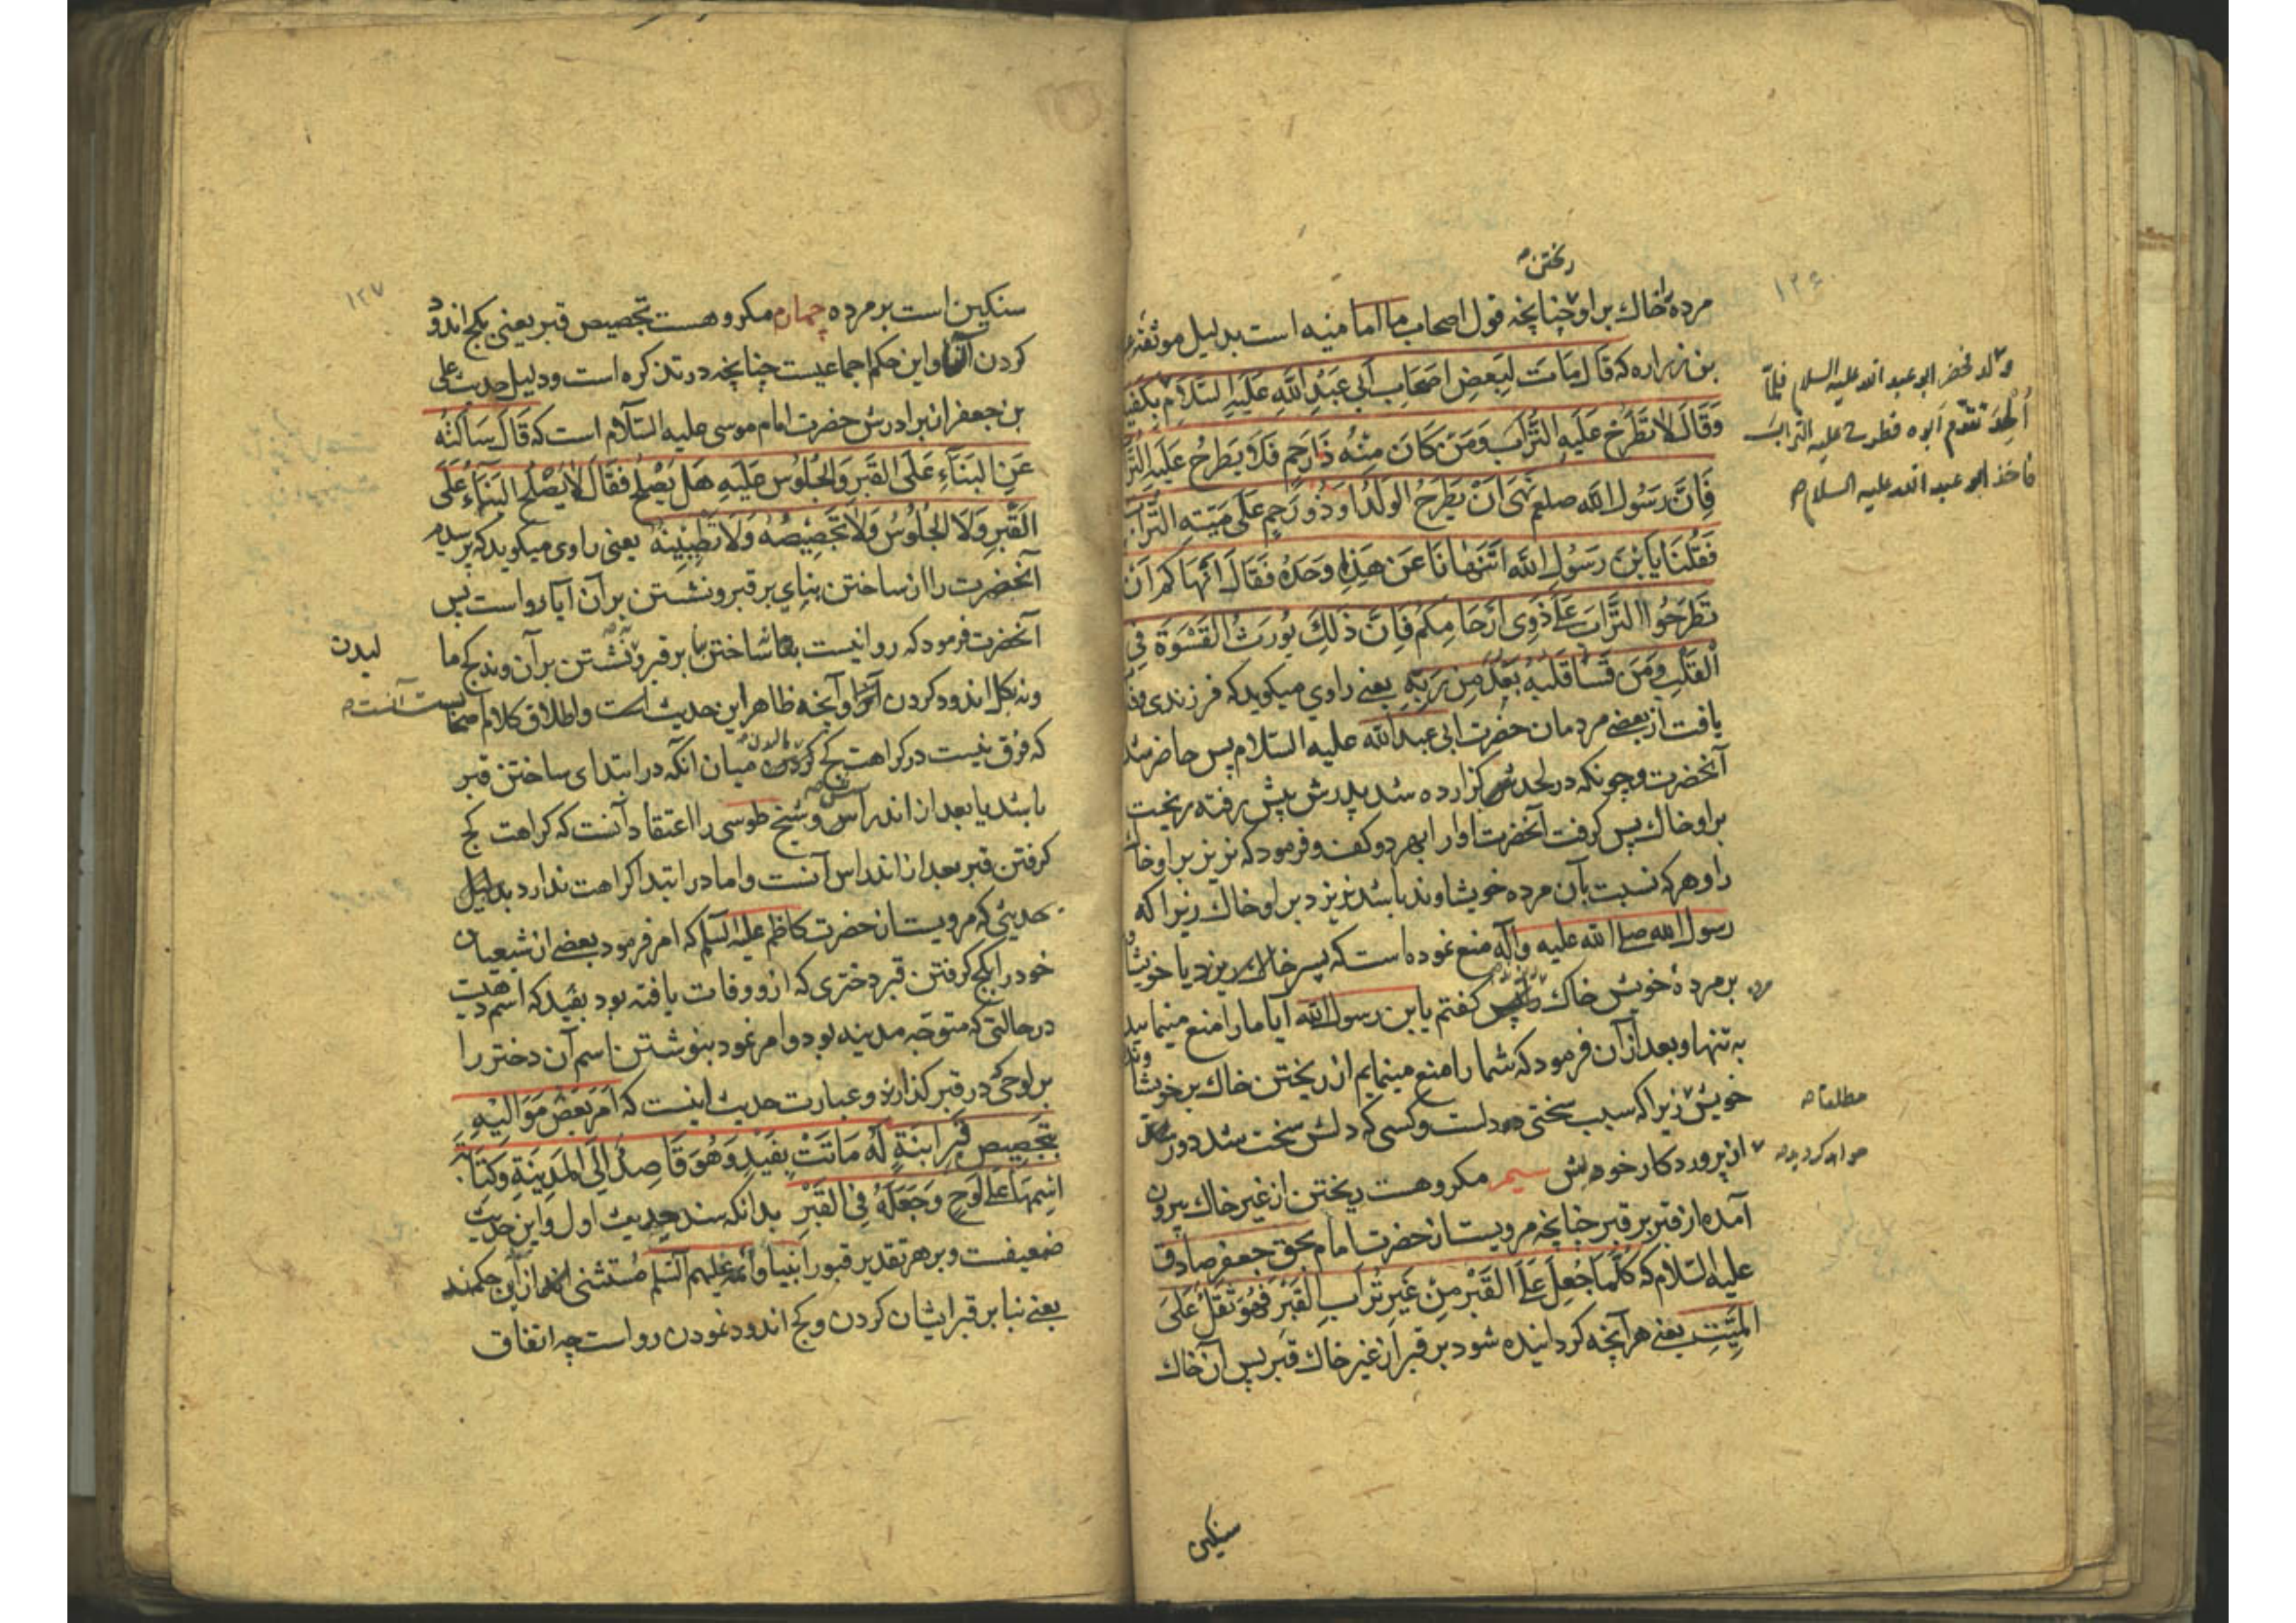 ۱۲۶
ریختن
مرده را خاك بر او چنانچه قول اصحاب ما امامیه است بدلیل موثقه
بن زراره که قَالَ مَاتَ لِبَعْضِ اَصْحَابِ اَبِي عَبْدِ اللَّهِ عَلَيْهِ السَّلَامُ
ولد فحضر ابو عبد الله علیه السلام فلمّا
اُلحِدَ تقدّم ابوه فطرح علیه التراب
فاخذ ابو عبد الله علیه السلام
وَقَالَ لَا تَطْرَحْ عَلَيْهِ التُّرَابَ وَمَنْ كَانَ مِنْهُ ذَا رَحِمٍ فَلَا يَطْرَحْ عَلَيْهِ
فَاِنَّ رَسُولَ اللَّهِ صلعم نَهَى اَنْ يَطْرَحَ الْوَلَدُ اَوْ ذُو رَحِمٍ عَلَى مَيِّتِهِ التُّرَابَ
فَقُلْنَا يَا بْنَ رَسُولِ اللَّهِ اَتَنْهَانَا عَنْ هَذِهِ وَحْدَهُ فَقَالَ اَنْهَاكُمْ اَنْ
تَطْرَحُوا التُّرَابَ عَلَى ذَوِي اَرْحَامِكُمْ فَاِنَّ ذَلِكَ يُورِثُ الْقَسْوَةَ فِي
الْقَلْبِ وَمَنْ قَسَا قَلْبُهُ بَعُدَ مِنْ رَبِّهِ یعنی راوی میکوید که فرزندی
یافت از بعضی مردمان حضرت ابی عبد الله علیه السلام پس حاضر شد
آنحضرت و چونکه در لحدش کزارده شد پدرش پیش رفته ریخت
بر او خاك پس کرفت آنحضرت او را بهر دو کف و فرمود که نریز بر او خاك
را و هر که نسبت بآن مرده خویشاوند باشد نریزد بر او خاك زیرا که
رسول الله صلی الله علیه وآله منع نموده است که پسر خاك ریزد یا
بر مردهٔ خویش خاك کفتم یابن رسول الله آیا ما را منع مینمایید
به تنها و بعد از آن فرمود که شما را منع مینمایم از ریختن خاك بر
خویش زیرا که سبب سختی دلست و کسی که دلش سخت شد دور
مطلقا
از پروردکار خودش سیم مکروهست ریختن از غیر خاك بیرون
آمده از قبر بر قبر چنانچه مرویست از حضرت امام بحق جعفر صادق
علیه السّلام که كُلَّمَا جُعِلَ عَلَى الْقَبْرِ مِنْ غَيْرِ تُرَابِ الْقَبْرِ فَهُوَ ثِقْلٌ عَلَى
الْمَيِّتِ یعنی هر آنچه کردانیده شود بر قبر از غیر خاك قبر پس آن خاك
سنکین
۱۲۷
سنکین است بر مرده چهارم مکروهست تجصیص قبر یعنی بکج اندود
کردن و این حکم اجماعیست چنانچه در تذکره است و دلیل حدیث علی
بن جعفر از برادرش حضرت امام موسی علیه السّلام است که قَالَ سَاَلْتُهُ
عَنِ الْبِنَاءِ عَلَى الْقَبْرِ وَالْجُلُوسِ عَلَيْهِ هَلْ يَصْلُحُ فَقَالَ لَا يَصْلُحُ الْبِنَاءُ عَلَى
الْقَبْرِ وَلَا الْجُلُوسُ وَلَا تَجْصِيصُهُ وَلَا تَطْيِينُهُ یعنی راوی میکوید که پرسیدم
آنحضرت را از ساختن بنای بر قبر و نشستن بر آن آیا رواست پس
آنحضرت فرمود که روا نیست ساختن بنا بر قبر و نشستن بر آن و نه کج ما
لیدن
و نه بکل اندود کردن و آنچه ظاهر این حدیث است و اطلاق کلام
که فرق نیست در کراهت کج میان انکه در ابتدای ساختن قبر
باشد یا بعد از اندراس و شیخ طوسی را اعتقاد آنست که کراهت کج
کرفتن قبر بعد از اندراس آنست و اما در ابتدا کراهت ندارد بدلیل
حدیثی که مرویست از حضرت کاظم علیه السلم که امر فرمود بعضی از شیعیان
خود را بکج کرفتن قبر دختری که از و وفات یافته بود بفید که اسم دهیست
در حالتی که متوجه مدینه بود و امر نمود بنوشتن اسم آن دختر را
بر لوحی در قبر کذارند و عبارت حدیث اینست که اَمَرَ بَعْضَ مَوَالِيهِ
بِتَجْصِيصِ قَبْرِ ابْنَةٍ لَهُ مَاتَتْ بِفَيْدٍ وَهُوَ قَاصِدٌ اِلَى الْمَدِينَةِ وَكِتَابَةِ
اسْمِهَا عَلَى لَوْحٍ وَجَعَلَهُ فِي الْقَبْرِ بدانکه سند حدیث اول و این حدیث
ضعیفست و بر هر تقدیر قبور انبیا و ائمه علیهم السلم مستثنی از این حکمند
یعنی بنا بر قبر ایشان کردن و کج اندود نمودن رواست چه اتفاق